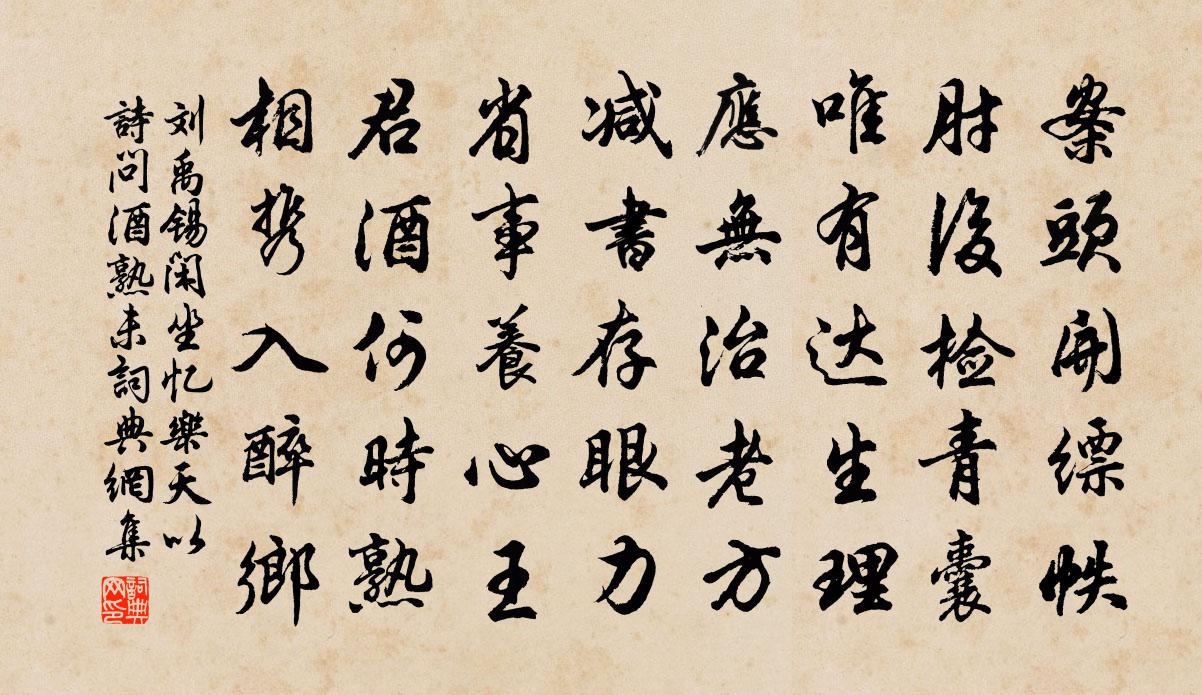 案頭開縹帙
肘後检青囊
唯有达生理
應無治老方
减書存眼力
省事養心王
君酒何時熟
相携入醉鄉
刘禹錫閑坐忆樂天以
詩問酒熟未詞典網集
詞典网印